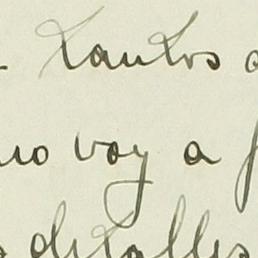 tantos
no voy a
detalles